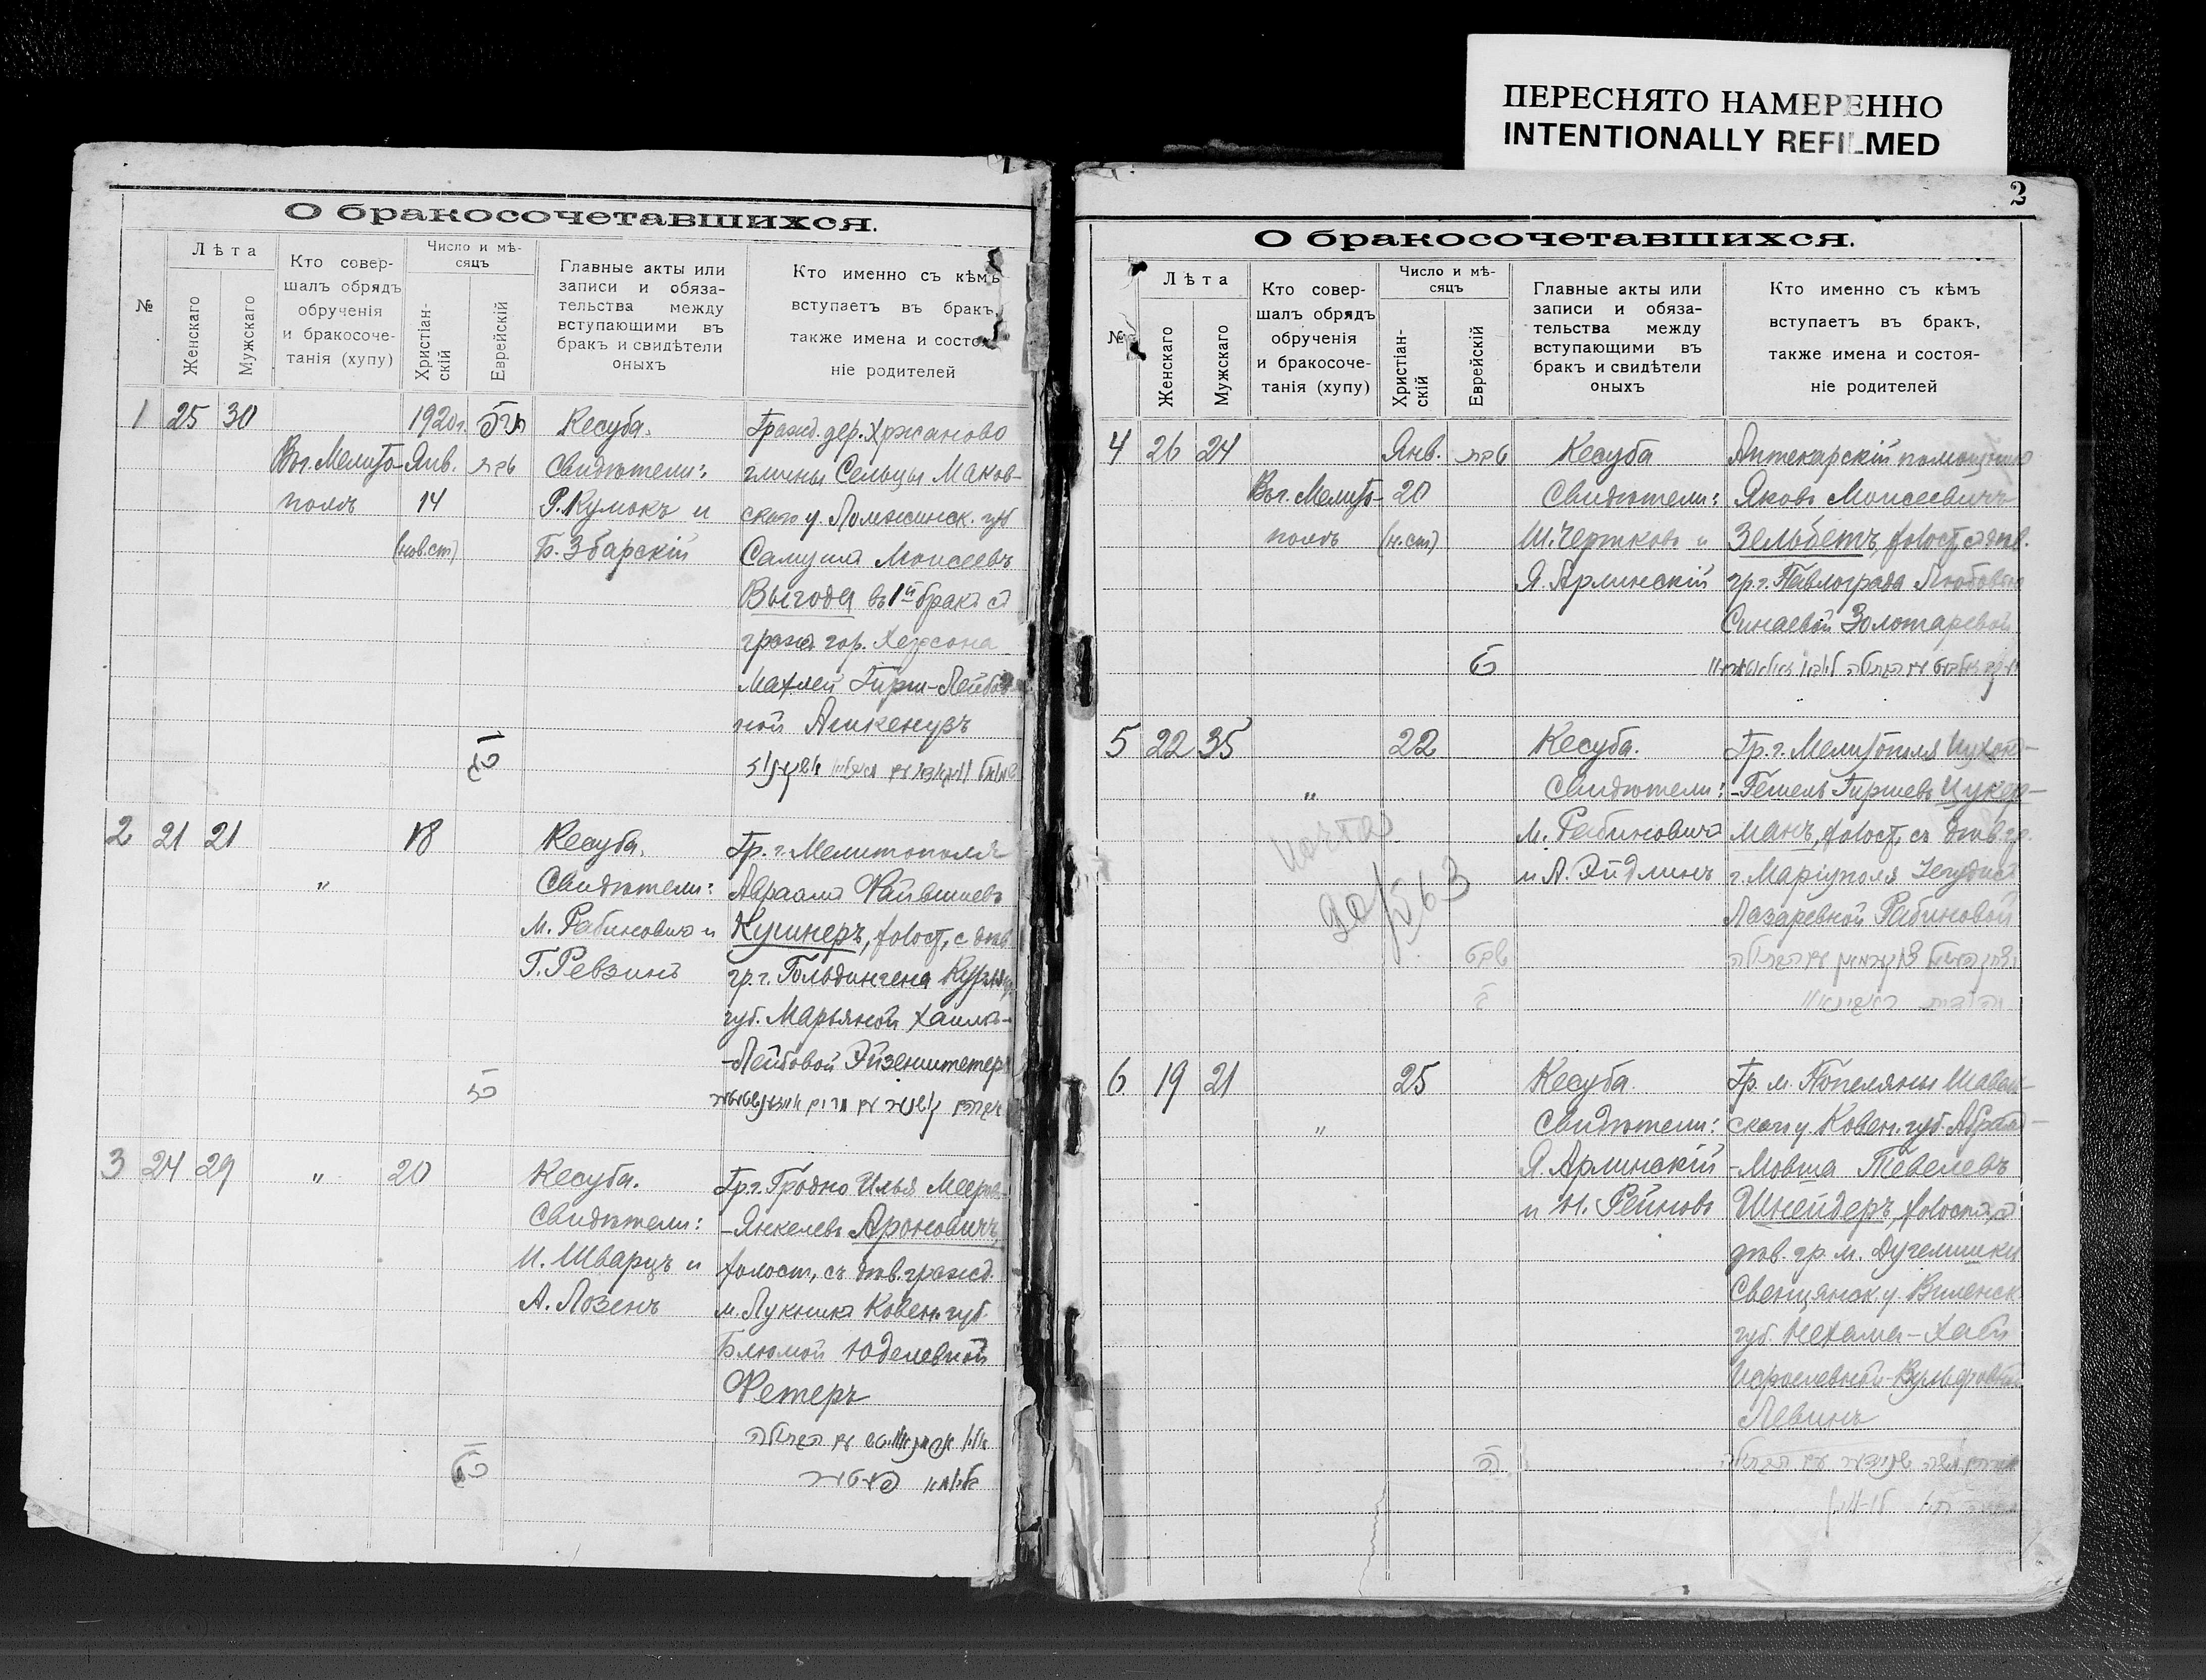 ПЕРЕСНЯТО НАМЕРЕННО
INTENTIONALLY REFILMED
О бракосочетавшихся.
№
Лѣта
Женскаго
Мужскаго
Кто совер-
шалъ обрядъ
обрученія
и бракосоче-
танія (хупу)
Число и мѣ-
сяцъ
Христіан-
скій
Еврейскій
Главные акты или
записи и обяза-
тельства между
вступающими въ
бракъ и свидѣтели
оныхъ
Кто именно съ кѣмъ
вступаетъ въ бракъ,
также имена и состоя-
ніе родителей
1 25 30
Въ г. Мелито-
поль
1920 г.
Янв.
14
(нов. ст)
טבת
Кесуба.
Свидѣтели:
Р. Кумокъ и
Б. Збарскій
Гражд. дер. Хржаново
гмины Сельцы Маков-
скаго у. Ломжинск. губ
Самуилъ Моисеевъ
Выгода въ 1й бракъ съ
гражд. гор. Херсона
Махлей Гирш-Лейбов-
ной Ашкенузъ
2 21 21
"
18
Кесуба.
Свидѣтели:
М. Рабиновичъ и
Г. Ревзинъ
Гр. г. Мелитополя
Авраамъ Файвишевъ
Кушнеръ, холост, с дѣв.
гр. г. Гольдингена Курлянд.
губ. Марьяной Хаимъ-
-Лейбовой Эйзенштетеръ
3 24 29
"
20
Кесуба.
Свидѣтели:
И. Шварцъ и
А. Лозенъ
Гр. г. Гродно Илья Мееръ-
-Янкелевъ Ароновичъ,
холост, съ дѣв. гражд.
м. Лукникъ Ковен. губ.
Блюмой Юделевной
Фетеръ
2
О бракосочетавшихся.
№
Лѣта
Женскаго
Мужскаго
Кто совер-
шалъ обрядъ
обрученія
и бракосоче-
танія (хупу)
Число и мѣ-
сяцъ
Христіан-
скій
Еврейскій
Главные акты или
записи и обяза-
тельства между
вступающими въ
бракъ и свидѣтели
оныхъ
Кто именно съ кѣмъ
вступаетъ въ бракъ,
также имена и состоя-
ніе родителей
4 26 24
Въ г. Мелито-
поль
Янв.
20
(н. ст)
טבת
Кесуба
Свидѣтели:
Ш. Чертковъ и
Я. Арлинскій
Аптекарскій помощникъ
Яковъ Моисеевичъ
Зельбетъ, холост, съ дѣв.
гр. г. Павлограда Любовью
Синаевой Золотаревой
5 22 35
"
22
Кесуба.
Свидѣтели:
М. Рабиновичъ
и А. Эйдлинъ
Гр. г. Мелитополя Ицхокъ-
-Гешель Гиршевъ Цукер-
манъ, холост, съ дѣв. гр.
г. Маріуполя Іегудисъ
Лазаревной Рабиновой
שבט
6 19 21
"
25
Кесуба.
Свидѣтели:
Я. Арлинскій
и Н. Рейновъ
Гр. м. Попеляны Шавель-
скаго у. Ковен. губ. Абрамъ-
-Мовша Тевелевъ
Шнейдеръ, холостъ, съ
дѣв. гр. м. Дугелишки
Свенцянск. у. Виленск.
губ. Нехама-Хаей
Исроелевной-Вульфовной
Левинъ